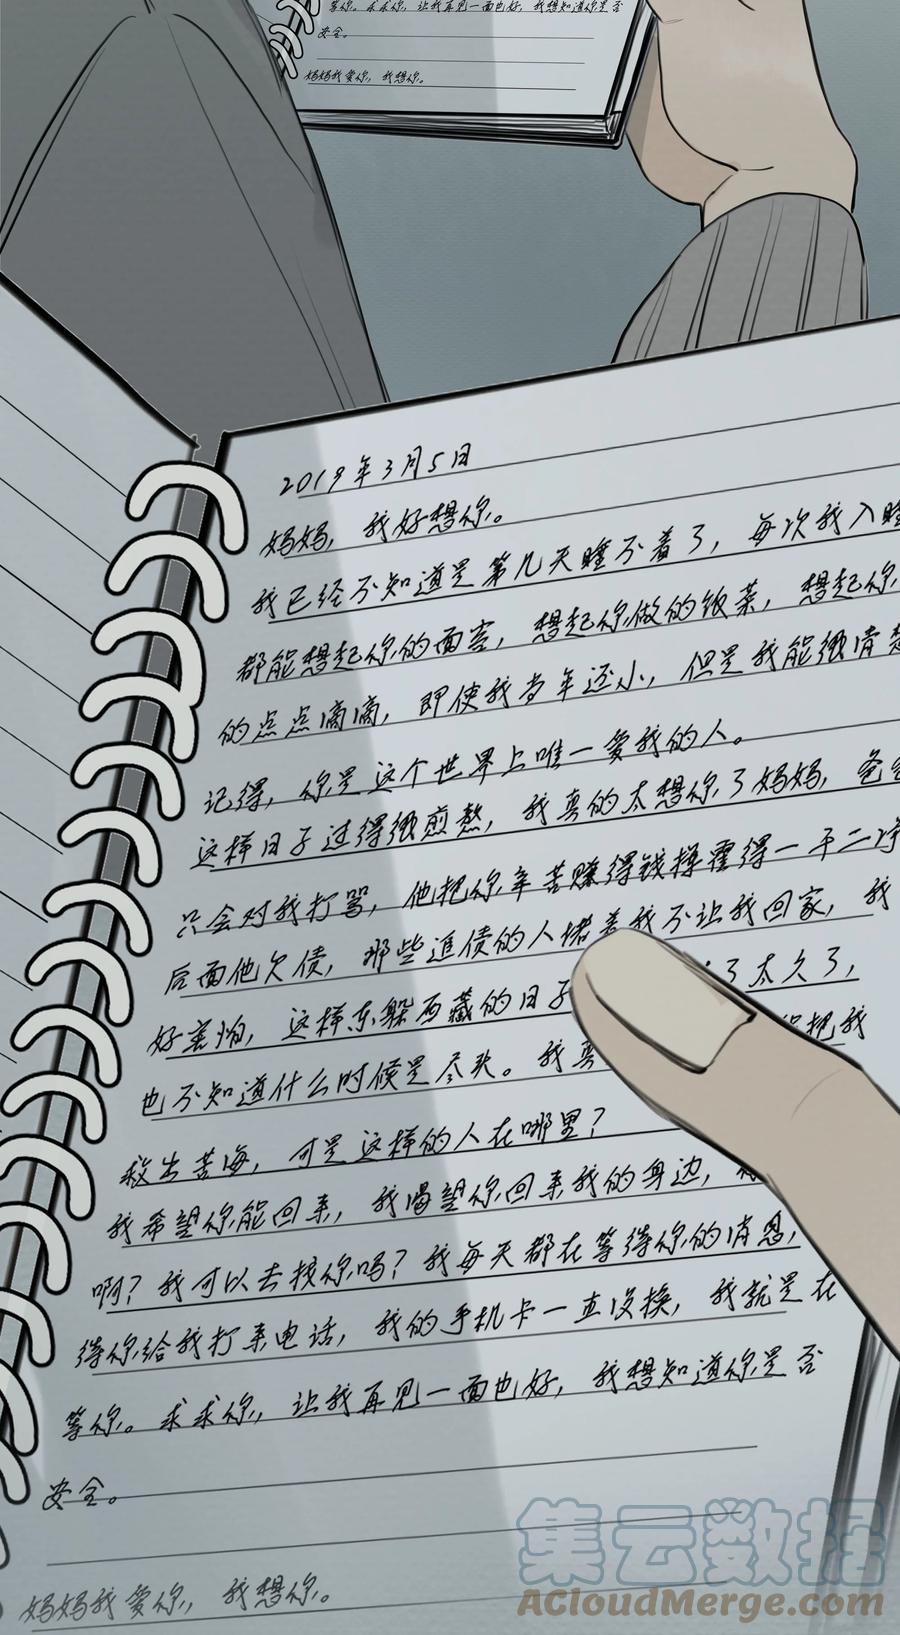 等你。求求你，让我再见一面也好，我想知道你是否
安全。
妈妈我爱你，我想你。
2019年3月5日
妈妈，我好想你。
我已经不知道是第几天睡不着了，每次我入睡
都能想起你的面容，想起你做的饭菜，想起你
的点点滴滴，即使我当年还小，但是我能很清楚
记得，你是这个世界上唯一爱我的人。
这样日子过得很煎熬，我真的太想你了妈妈，爸爸
只会对我打骂，他把你辛苦赚得钱挥霍得一干二净
后面他欠债，那些追债的人堵着我不让我回家，我
好害怕，这样东躲西藏的日子 了太久了，
也不知道什么时候是尽头。我真 把我
救出苦海，可是这样的人在哪里？
我希望你能回来，我渴望你回来我的身边，
啊？我可以去找你吗？我每天都在等待你的消息，
待你给我打来电话，我的手机卡一直没换，我就是在
等你。求求你，让我再见一面也好，我想知道你是否
安全。
妈妈我爱你，我想你。
集云数据
ACloudMerge.com